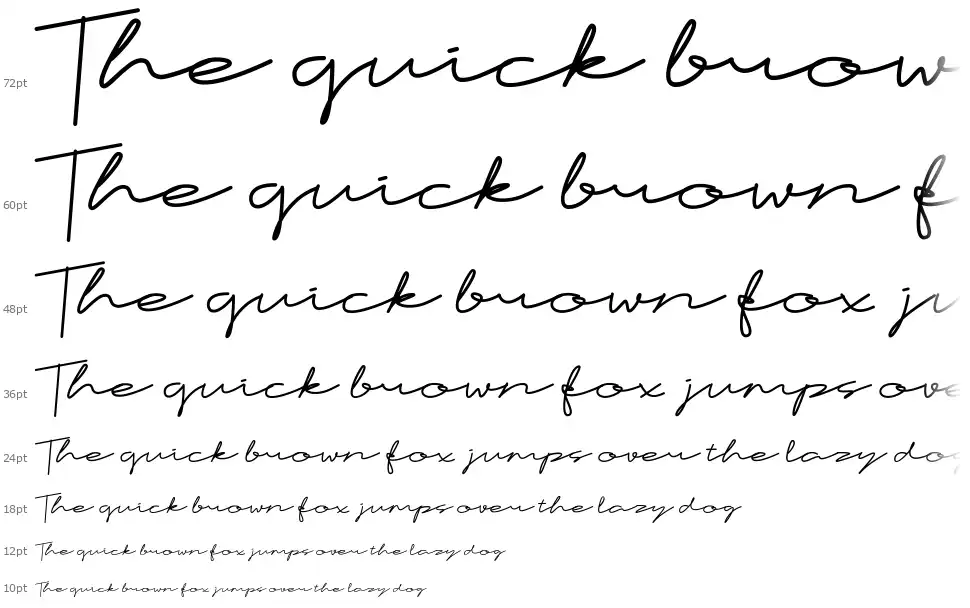 72pt The quick brow
60pt The quick brown f
48pt The quick brown fox ju
36pt The quick brown fox jumps ove
24pt The quick brown fox jumps over the lazy dog
18pt The quick brown fox jumps over the lazy dog
12pt The quick brown fox jumps over the lazy dog
10pt The quick brown fox jumps over the lazy dog